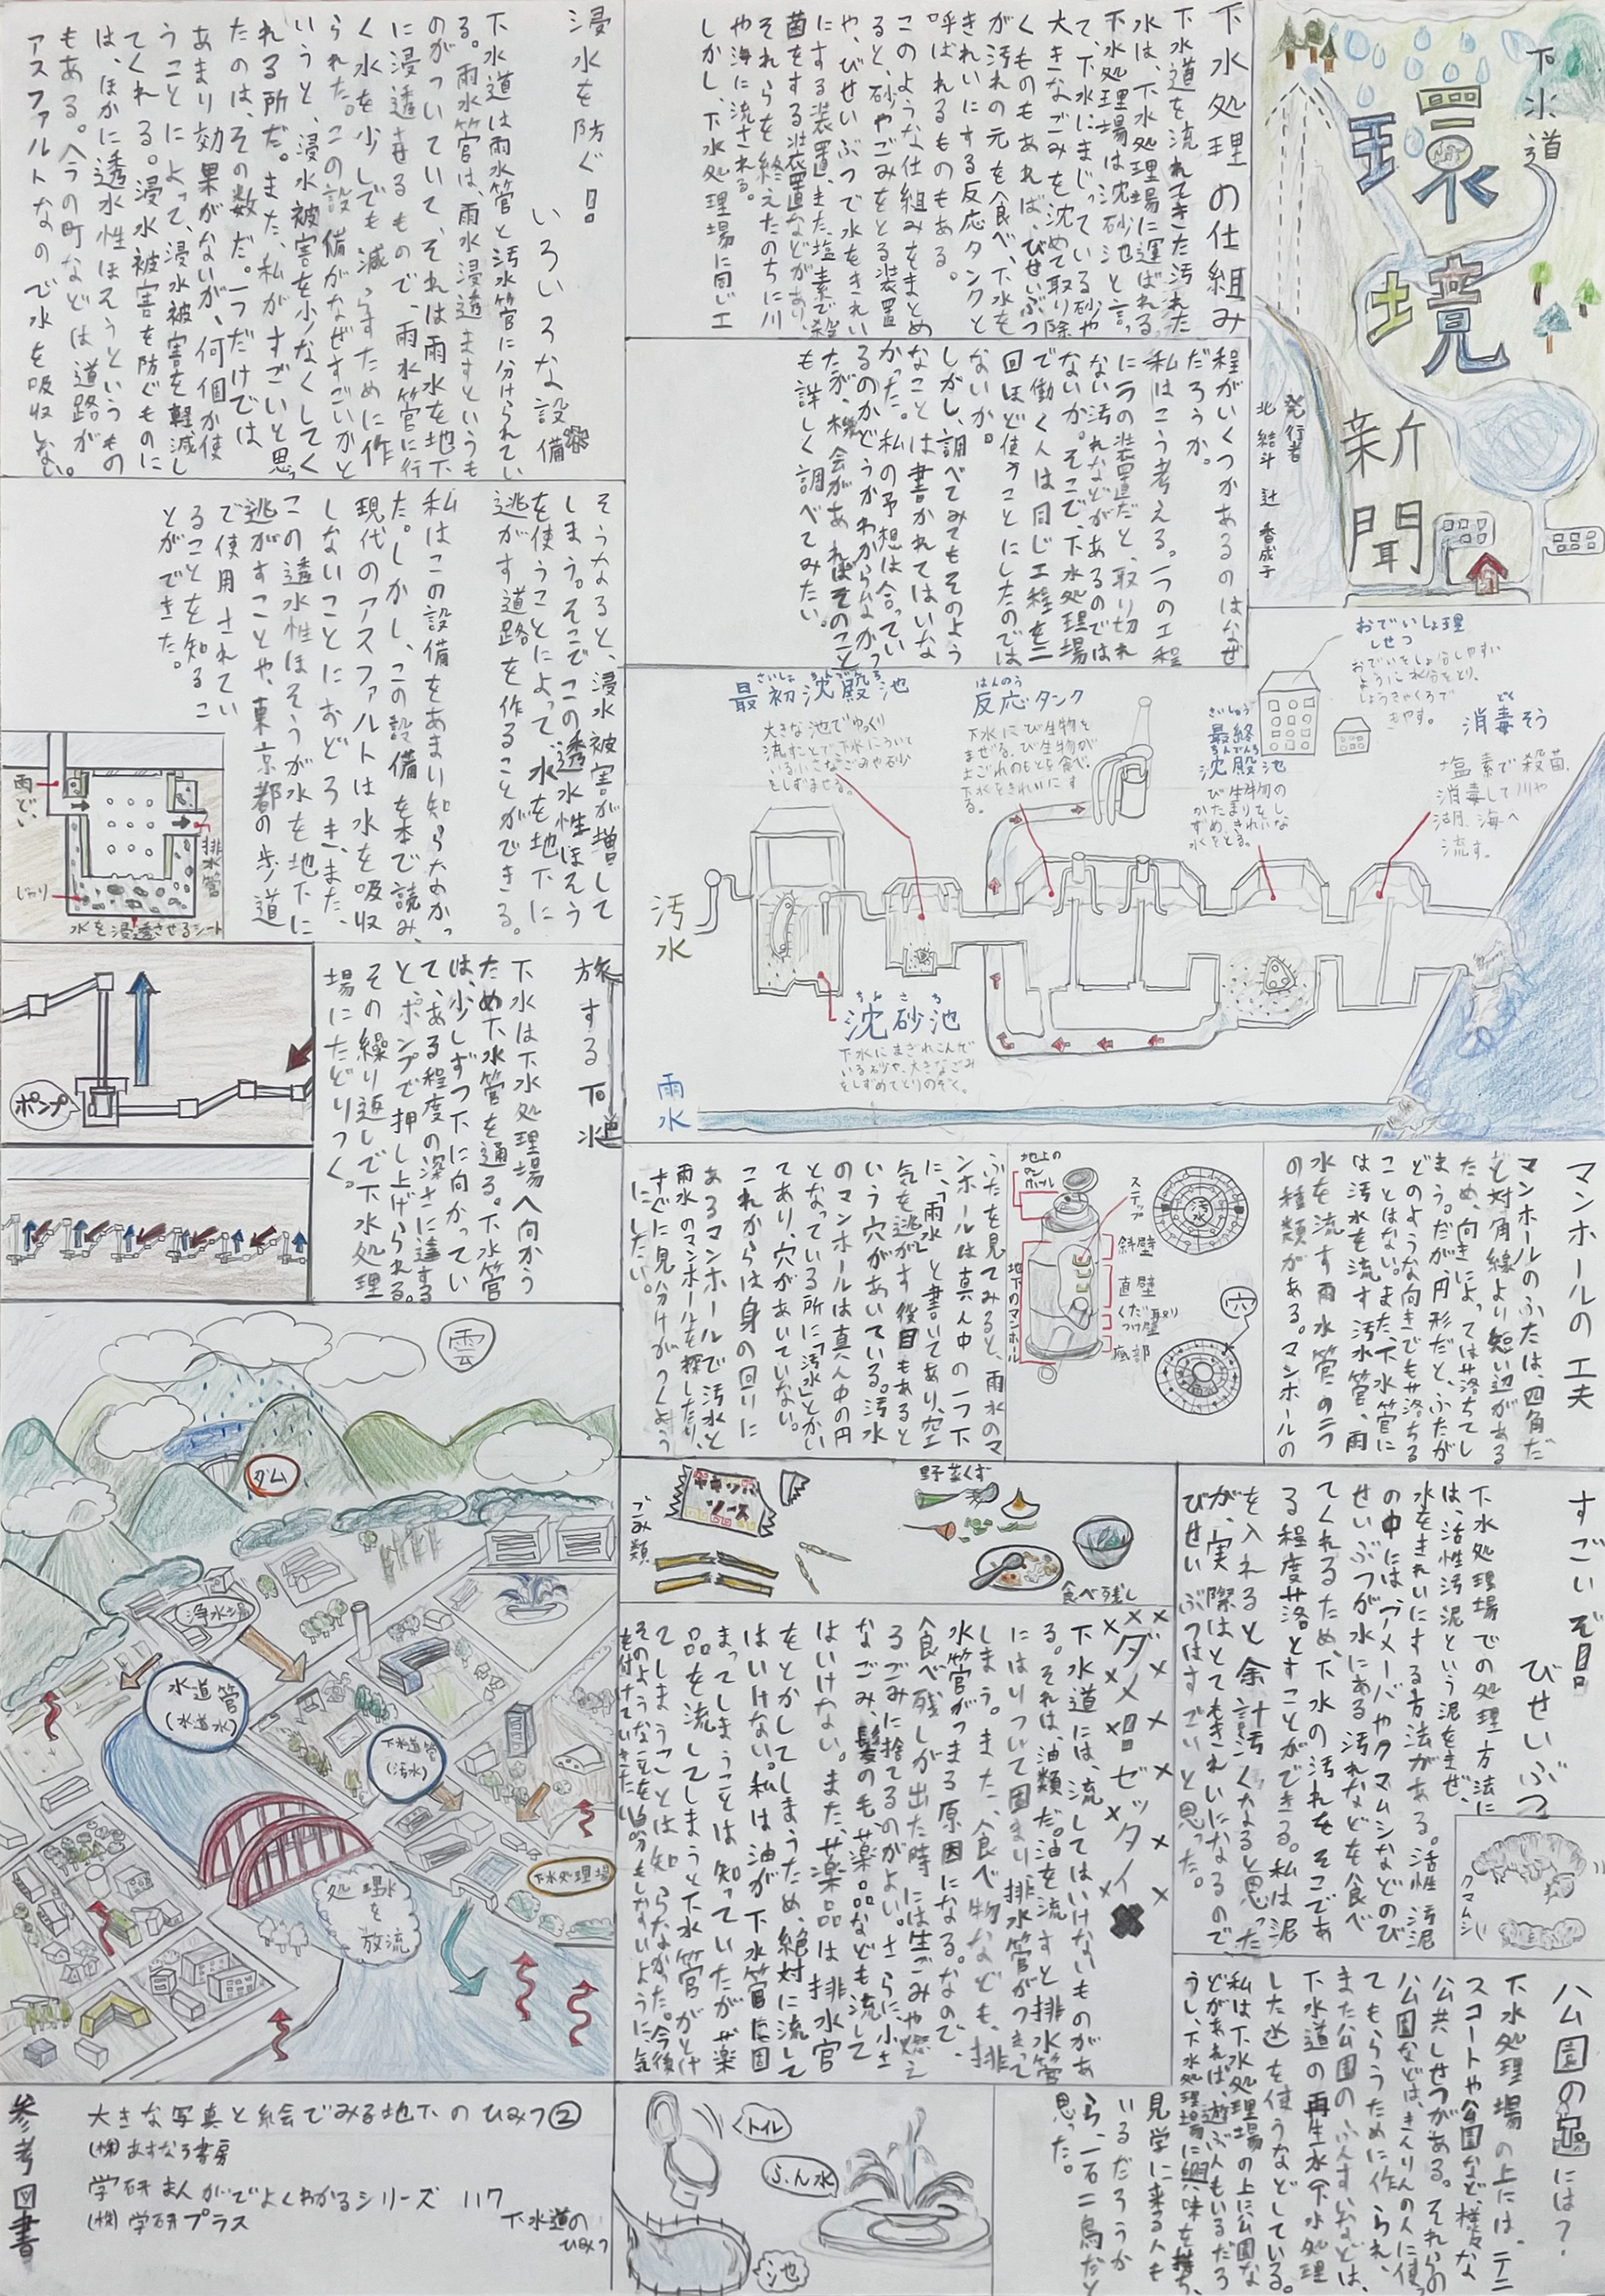 下水道
環境
新聞
発行者
北 結斗 辻 香成子
下水処理の仕組み
下水道を流れてきた汚れた
水は、下水処理場に運ばれる。
下水処理場は沈砂池と言っ
て、下水にまじっている砂や
大きなごみを沈めて取り除
くものもあれば、びせいぶつ
が汚れの元を食べ、下水を
きれいにする反応タンクと
呼ばれるものもある。
このような仕組みをまとめ
ると、砂やごみをとる装置
や、びせいぶつで水をきれい
にする装置、また、塩素で殺
菌をする装置などがあり、
それらを終えたのちに川
や海に流される。
しかし、下水処理場に同じ工
程がいくつかあるのはなぜ
だろうか。
私はこう考える。一つの工程
に一つの装置だと、取り切れ
ない汚れなどがあるのでは
ないか。そこで、下水処理場
で働く人は同じ工程を二
回ほど使うことにしたのでは
ないか。
しかし、調べてみてもそのよう
なことは書かれてはいな
かった。私の予想は合ってい
るのかどうかわからなかっ
たが、機会があればそのこと
も詳しく調べてみたい。
浸水を防ぐ!!
いろいろな設備
下水道は雨水管と汚水管に分けられてい
る。雨水管は、雨水浸透ますというも
のがついていて、それは雨水を地下
に浸透させるもので、雨水管に行
く水を少しでも減らすために作
られた。この設備がなぜすごいかと
いうと、浸水被害を少なくしてく
れる所だ。また、私がすごいと思っ
たのは、その数だ。一つだけでは
あまり効果がないが、何個か使
うことによって、浸水被害を軽減し
てくれる。浸水被害を防ぐものに
は、ほかに透水性ほそうというもの
もある。ヘラの町などは道路が
アスファルトなので水を吸収しない。
そうなると、浸水被害が増して
しまう。そこでこの透水性ほそう
を使うことによって、水を地下に
逃がす道路を作ることができる。
私はこの設備をあまり知らなかっ
た。しかし、この設備を本で読み、
現代のアスファルトは水を吸収
しないことにおどろき、また、
この透水性ほそうが水を地下に
逃がすことや、東京都の歩道
で使用されてい
ることを知るこ
とができた。
雨どい
排水管
じゃり
水を浸透させるシート
最初沈殿池
さいしょちんでんち
大きな池でゆっくり
流すことで下水について
いる小さなごみや砂
をしずませる。
反応タンク
はんのう
下水にび生物を
まぜる。び生物が
よごれのもとを食べ、
下水をきれいにす
る。
最終沈殿池
さいしゅうちんでんち
び生物の
かたまりをし
ずめ、きれいな
水をとる。
おでいしょ理
しせつ
おでいをしょ分しやすい
ように水分をとり、
しょうきゃくろで
もやす。
消毒そう
どく
塩素で殺菌、
消毒して川や
湖、海へ
流す。
汚水
沈砂池
ちんさち
下水にまぎれこんで
いる砂や、大きなごみ
をしずめてとりのぞく。
雨水
旅する下水道
下水は下水処理場へ向かう
ため下水管を通る。下水管
は、少しずつ下に向かってい
て、ある程度の深さに達する
と、ポンプで押し上げられる。
その繰り返しで下水処理
場にたどりつく。
ポンプ
マンホールの工夫
マンホールのふたは、四角だ
と対角線より短い辺がある
ため、向きによっては落ちてし
まう。だが、円形だと、ふたが
どのような向きでも落ちる
ことはない。また、下水管に
は汚水を流す汚水管、雨
水を流す雨水管の二つ
の種類がある。マンホールの
ふたを見てみると、雨水のマ
ンホールは真ん中の一つ下
に、「雨水」と書いてあり、空
気を逃がす役目もあると
いう穴があいている。汚水
のマンホールは真ん中の円
となっている所に「汚水」とかい
てあり、穴があいていない。
これからは身の回りに
あるマンホールで汚水と
雨水のマンホールを探したり、
すぐに見分けがつくよう
にしたい。
地上のマンホール
地下のマンホール
ステップ
斜壁
直壁
くだ取りつけ壁
底部
汚水
穴
すごいぞ!!びせいぶつ
下水処理場での処理方法に
は、活性汚泥という泥をまぜ、
水をきれいにする方法がある。活性汚泥
の中には、アメーバやクマムシなどのび
せいぶつが水にある汚れなどを食べ
てくれるため、下水の汚れをそこであ
る程度落とすことができる。私は泥
を入れると余計汚くなると思った
が、実際はとてもきれいになるので
びせいぶつはすごいと思った。
クマムシ
ごみ類
野菜くず
食べ残し
ダメ!!ゼッタイ
下水道には、流してはいけないものがあ
る。それは、油類だ。油を流すと排水管
にはりついて固まり、排水管がつまって
しまう。また、食べ物なども、排
水管がつまる原因になる。なので、
食べ残しが出た時には生ごみや燃え
るごみに捨てるのがよい。さらに、小さ
なごみ、髪の毛、薬品なども流して
はいけない。また、薬品は排水管
をとかしてしまうため、絶対に流して
はいけない。私は油が下水管に固
まってしまうことは知っていたが薬
品を流してしまうと下水管がとけ
てしまうことは知らなかった。今後
そのようなことを自分もしないように気
を付けていきたい。
公園の下には?
下水処理場の上には、テニ
スコートや公園など、様々な
公共しせつがある。それらの
公園などは、きんりんの人に使っ
てもらうために作られ、
また公園のふんすいなどは、
下水道の再生水(下水処理
した水)を使うなどしている。
私は下水処理場の上に公園な
どがあれば、遊ぶ人もいるだろ
うし、下水処理場に興味を持ち、
見学に来る人も
いるだろうか
ら、一石二鳥だと
思った。
雲
ダム
浄水場
水道管
(水道水)
下水道管
(汚水)
下水処理場
処理水
を
放流
トイレ
ふん水
池
参考図書
大きな写真と絵でみる地下のひみつ②
(株)あすなろ書房
学研まんがでよくわかるシリーズ 117
下水道のひみつ
(株)学研プラス